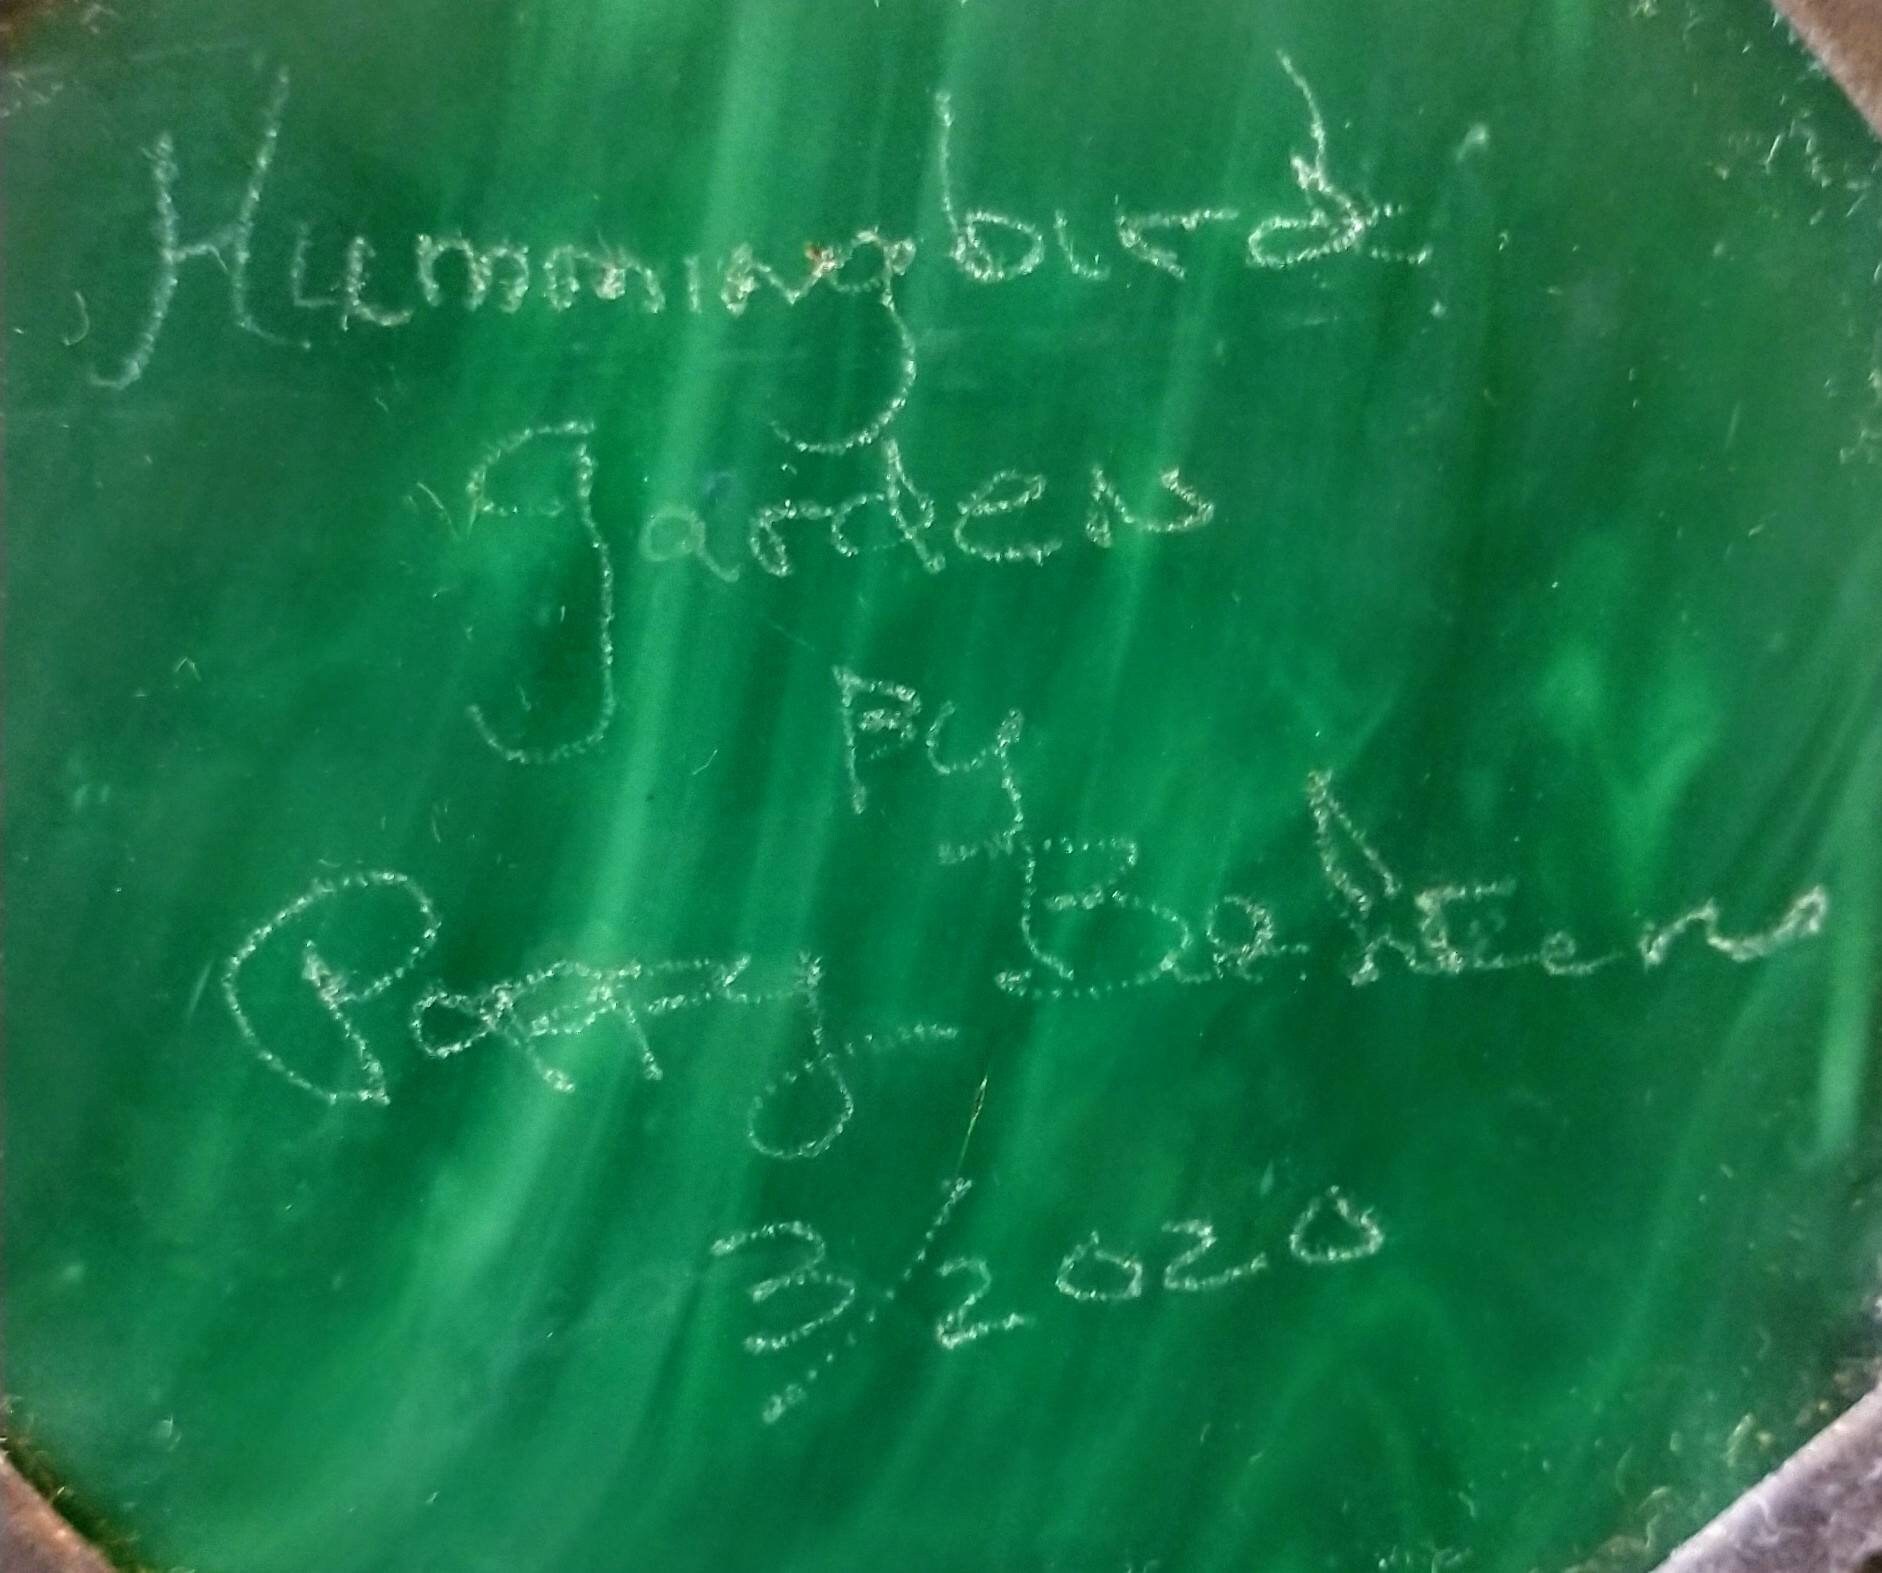 Hummingbird
Garden
By
Patty Bahten
3/2020